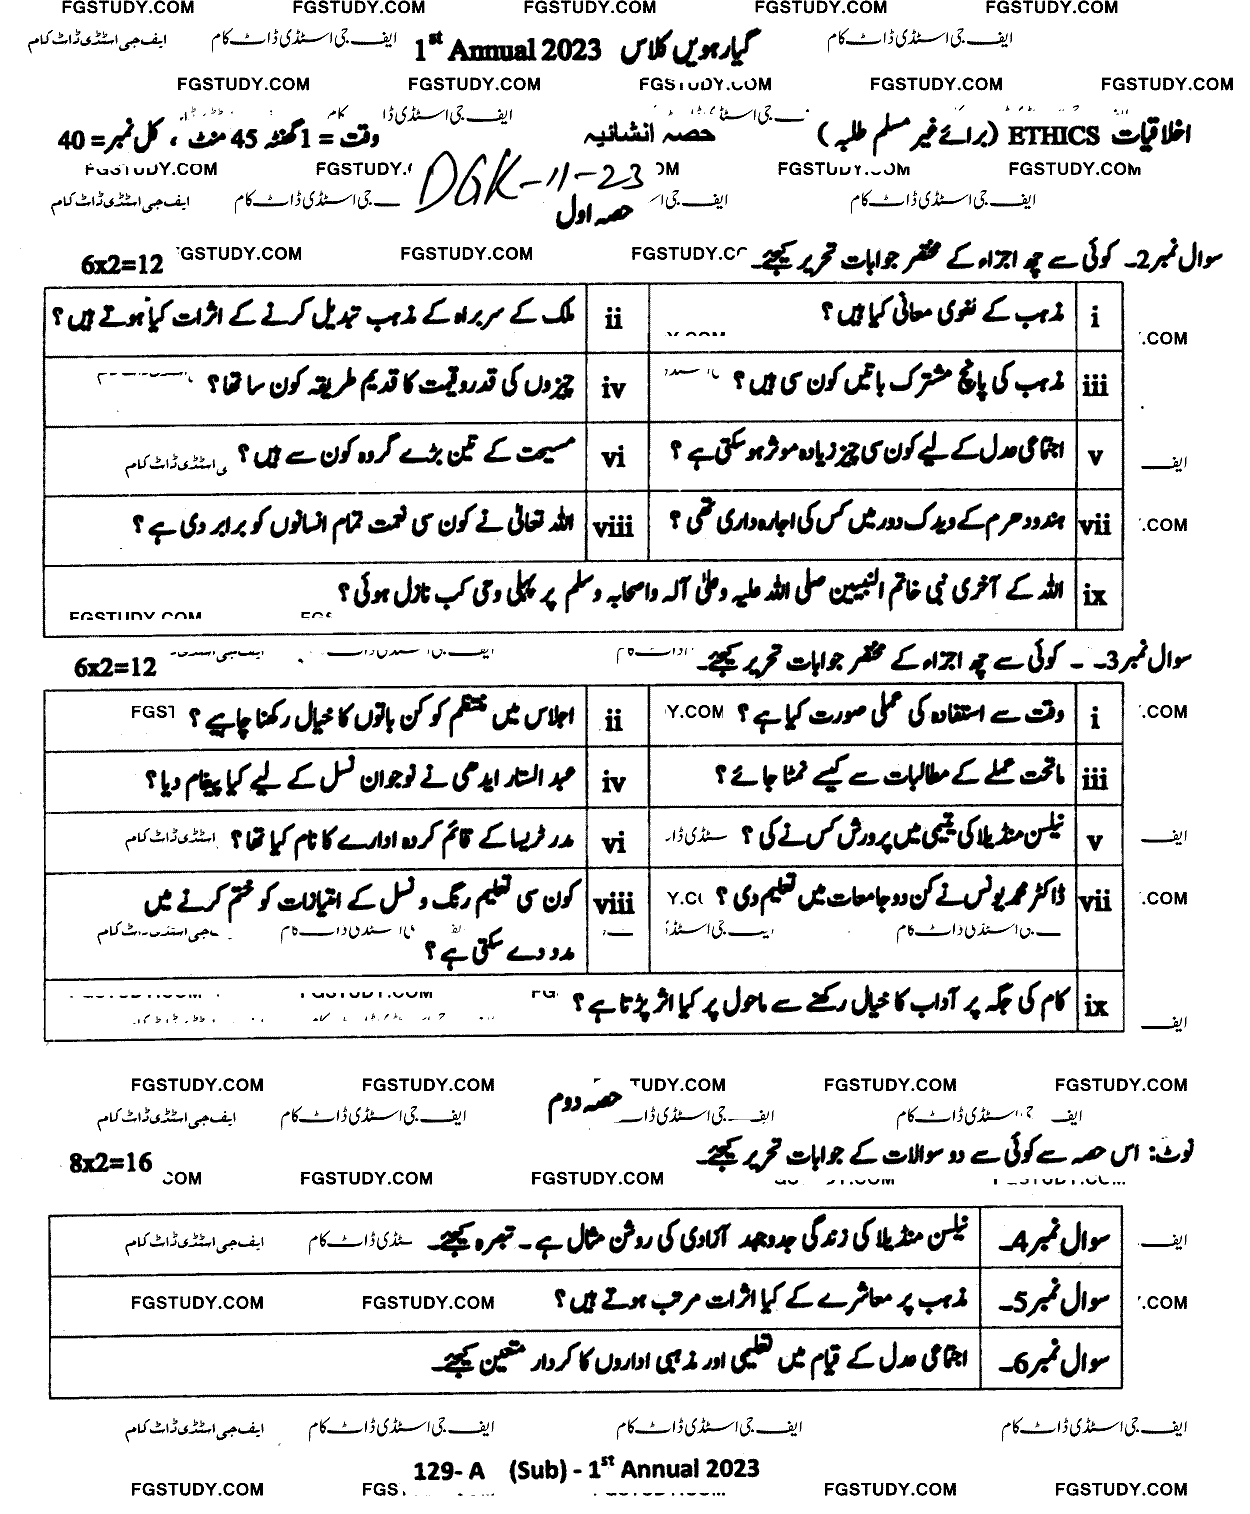 FGSTUDY.COM FGSTUDY.COM FGSTUDY.COM FGSTUDY.COM FGSTUDY.COM
گیارہویں کلاس 1st Annual 2023
ایف جی اسٹڈی ڈاٹ کام ایف جی اسٹڈی ڈاٹ کام ایف جی اسٹڈی ڈاٹ کام
FGSTUDY.COM FGSTUDY.COM FGSTUDY.COM FGSTUDY.COM
اخلاقیات ETHICS (برائے غیر مسلم طلبہ) حصہ انشائیہ وقت = 1 گھنٹہ 45 منٹ ، کل نمبر = 40
DGK-11-23
حصہ اول
سوال نمبر 2۔ کوئی سے چھ اجزاء کے مختصر جوابات تحریر کیجئے۔ 6x2=12
i مذہب کے لغوی معانی کیا ہیں؟
ii ملک کے سربراہ کے مذہب تبدیل کرنے کے اثرات کیا ہوتے ہیں؟
iii مذہب کی پانچ مشترک باتیں کون سی ہیں؟
iv چیزوں کی قدروقیمت کا قدیم طریقہ کون سا تھا؟
v اجتماعی عدل کے لیے کون سی چیز زیادہ موثر ہو سکتی ہے؟
vi مسیحت کے تین بڑے گروہ کون سے ہیں؟
vii ہندو دھرم کے ویدک دور میں کس کی اجارہ داری تھی؟
viii اللہ تعالیٰ نے کون سی نعمت تمام انسانوں کو برابر دی ہے؟
ix اللہ کے آخری نبی خاتم النبیین صلی اللہ علیہ وعلیٰ آلہ واصحابہ وسلم پر پہلی وحی کب نازل ہوئی؟
سوال نمبر 3۔ ۔ کوئی سے چھ اجزاء کے مختصر جوابات تحریر کیجئے۔ 6x2=12
i وقت سے استفادہ کی عملی صورت کیا ہے؟
ii اجلاس میں منتظم کو کن باتوں کا خیال رکھنا چاہیے؟
iii ماتحت عملے کے مطالبات سے کیسے نمٹا جائے؟
iv عبد الستار ایدھی نے نوجوان نسل کے لیے کیا پیغام دیا؟
v نیلسن منڈیلا کی یتیمی میں پرورش کس نے کی؟
vi مدر ٹریسا کے قائم کردہ ادارے کا نام کیا تھا؟
vii ڈاکٹر محمد یونس نے کن دو جامعات میں تعلیم دی؟
viii کون سی تعلیم رنگ و نسل کے امتیازات کو ختم کرنے میں
مدد دے سکتی ہے؟
ix کام کی جگہ پر آداب کا خیال رکھنے سے ماحول پر کیا اثر پڑتا ہے؟
FGSTUDY.COM FGSTUDY.COM FGSTUDY.COM FGSTUDY.COM
حصہ دوم
نوٹ: اس حصہ سے کوئی سے دو سوالات کے جوابات تحریر کیجئے۔ 8x2=16
سوال نمبر 4۔ نیلسن منڈیلا کی زندگی جدوجہد آزادی کی روشن مثال ہے۔ تبصرہ کیجئے۔
سوال نمبر 5۔ مذہب پر معاشرے کے کیا اثرات مرتب ہوتے ہیں؟
FGSTUDY.COM FGSTUDY.COM
سوال نمبر 6۔ اجتماعی عدل کے قیام میں تعلیمی اور مذہبی اداروں کا کردار متعین کیجئے۔
ایف جی اسٹڈی ڈاٹ کام ایف جی اسٹڈی ڈاٹ کام ایف جی اسٹڈی ڈاٹ کام ایف جی اسٹڈی ڈاٹ کام
129- A (Sub) - 1st Annual 2023
FGSTUDY.COM FGSTUDY.COM FGSTUDY.COM